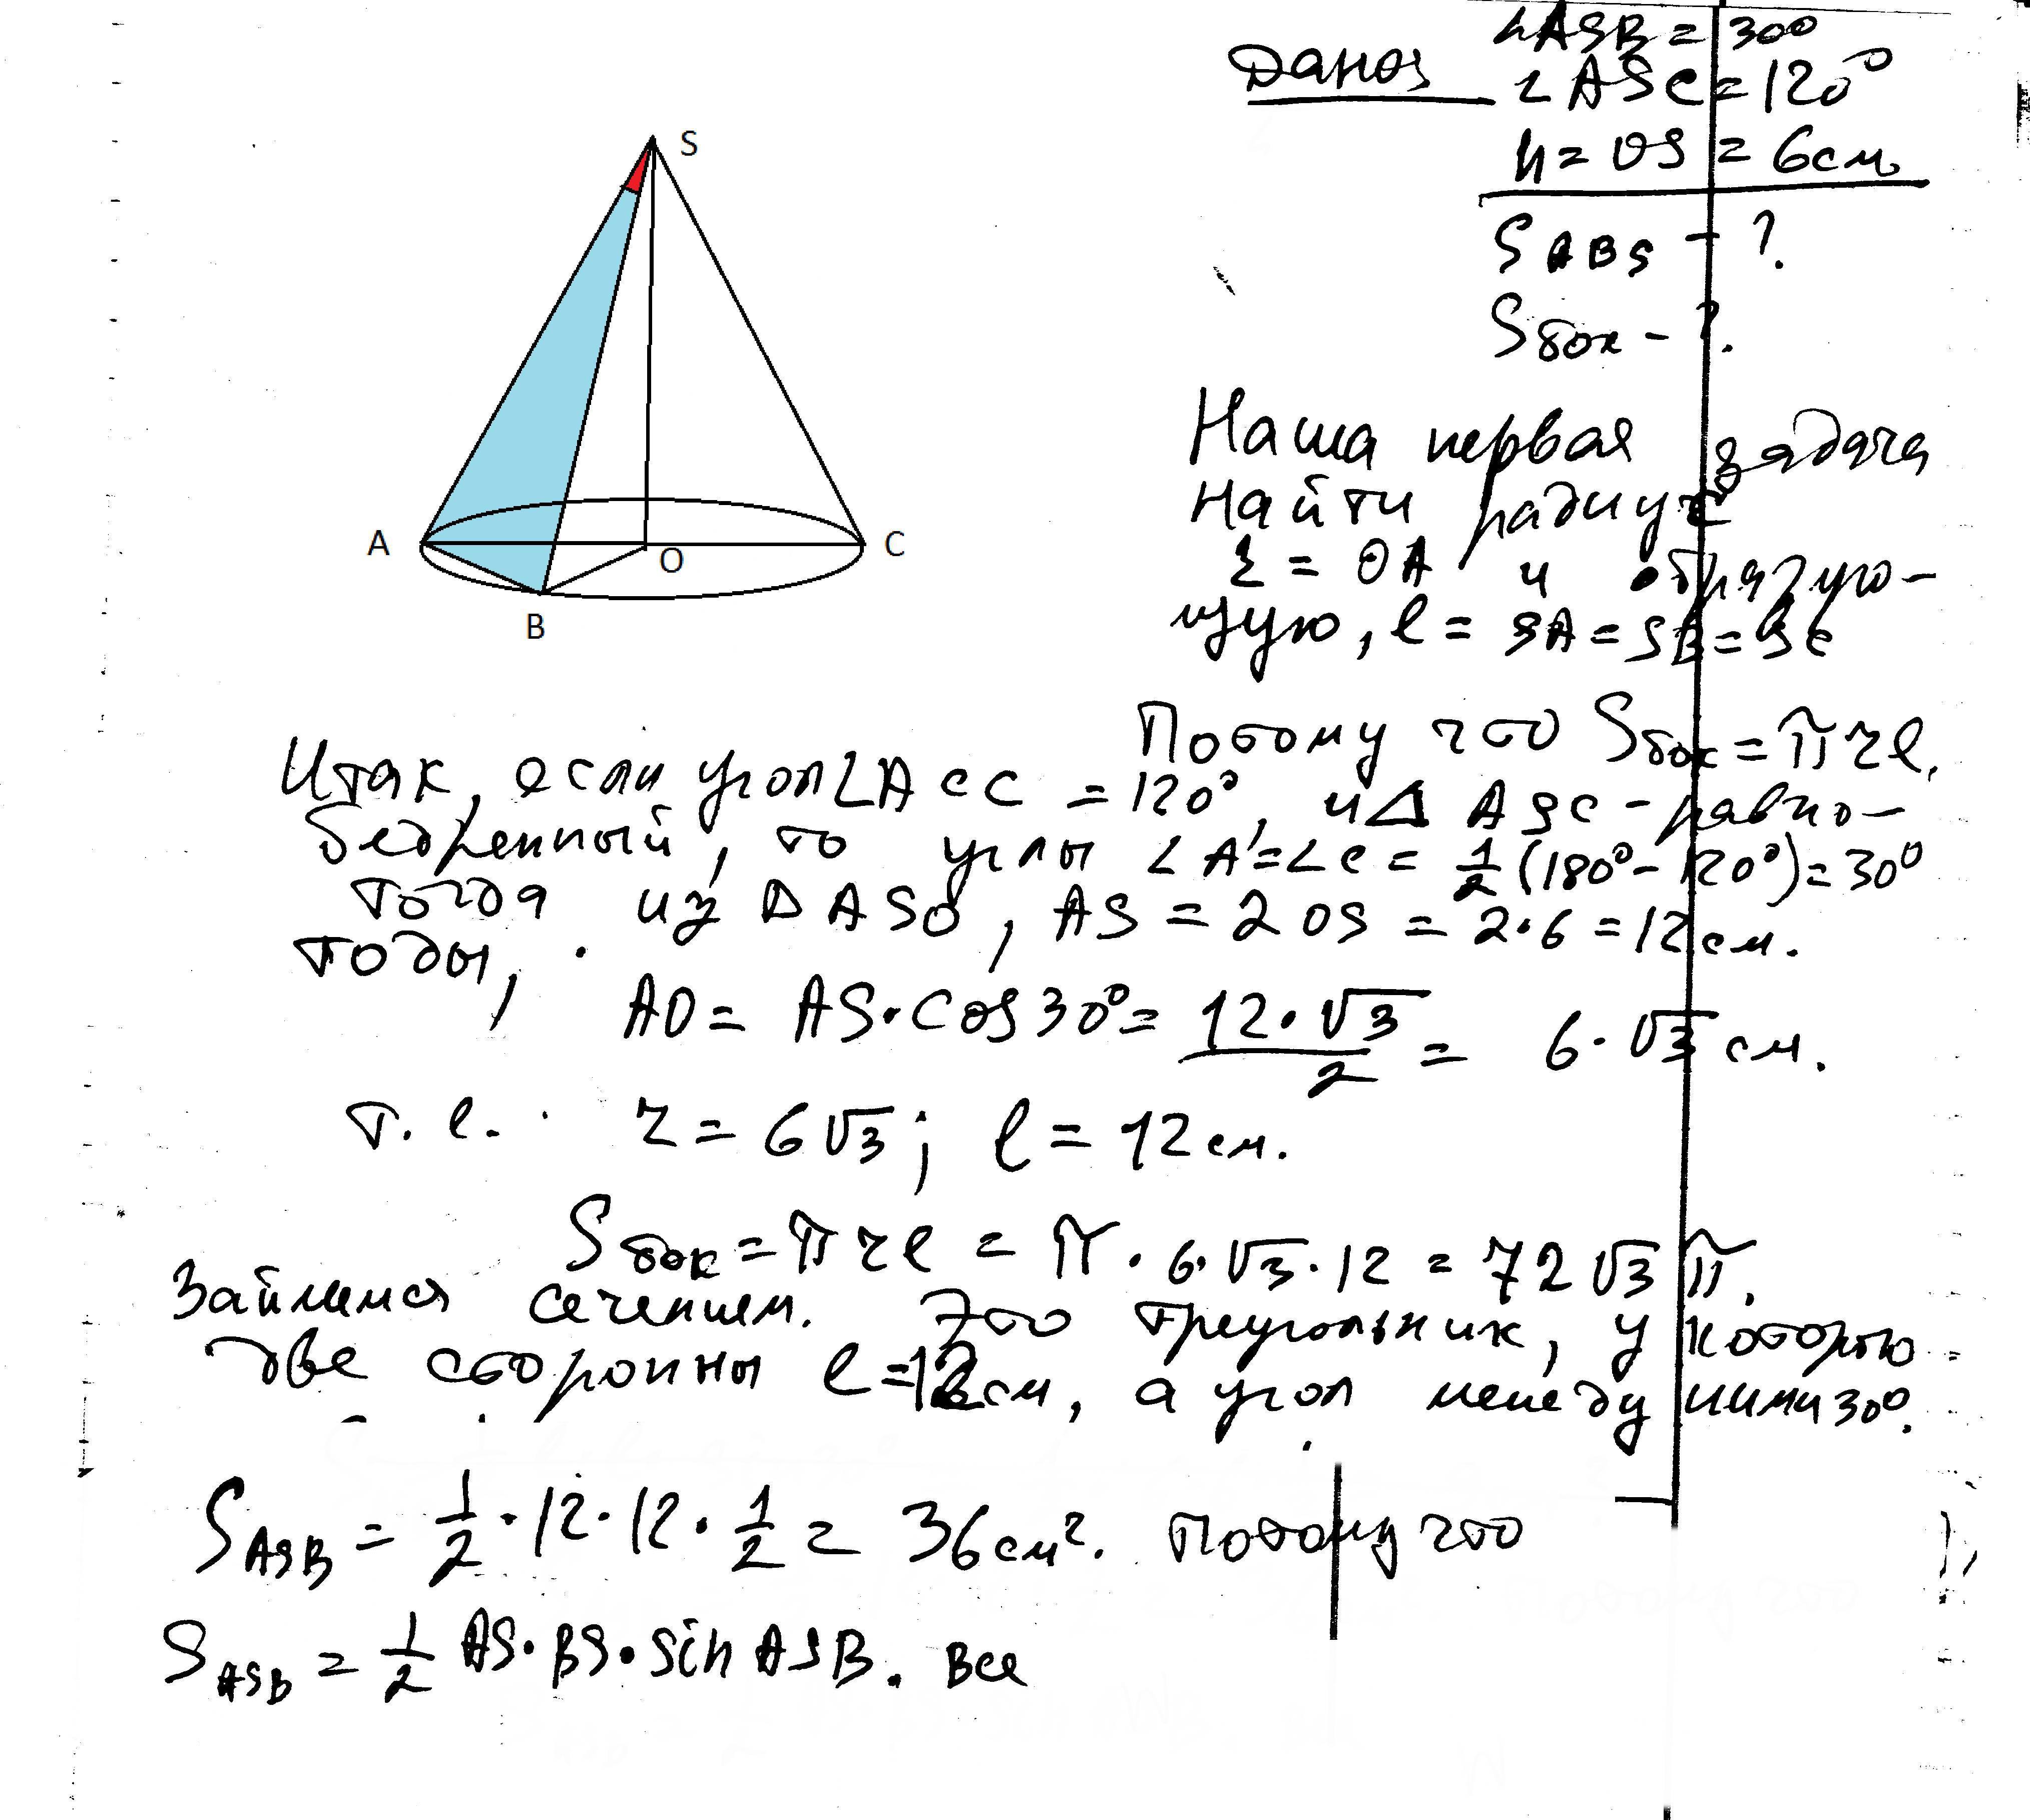 S
A
O
C
B
Дано: ∠ASB = 30°
∠ASC = 120°
H = OS = 6см
S ABS - ?
Sбок - ?
Наша первая задача
найти радиус
r = OA и образую-
щую, l = SA = SB = SC
Потому что Sбок = πrl.
Итак, если угол ∠ACC = 120°, и Δ ASC - равно-
бедренный, то углы ∠A = ∠C = 1/2 (180° - 120°) = 30°
тогда из Δ ASO, AS = 2 OS = 2·6 = 12 см.
AO = AS·cos30° = 12·√3/2 = 6·√3 см.
т.е. r = 6√3; l = 12см.
Sбок = πrl = π·6·√3·12 = 72√3 π.
Займемся сечением. Это треугольник, у которого
две стороны l = 12см, а угол между ними 30°.
S ASB = 1/2·12·12·1/2 = 36см². Потому что
S ASB = 1/2 AS·BS·sin ASB. Все